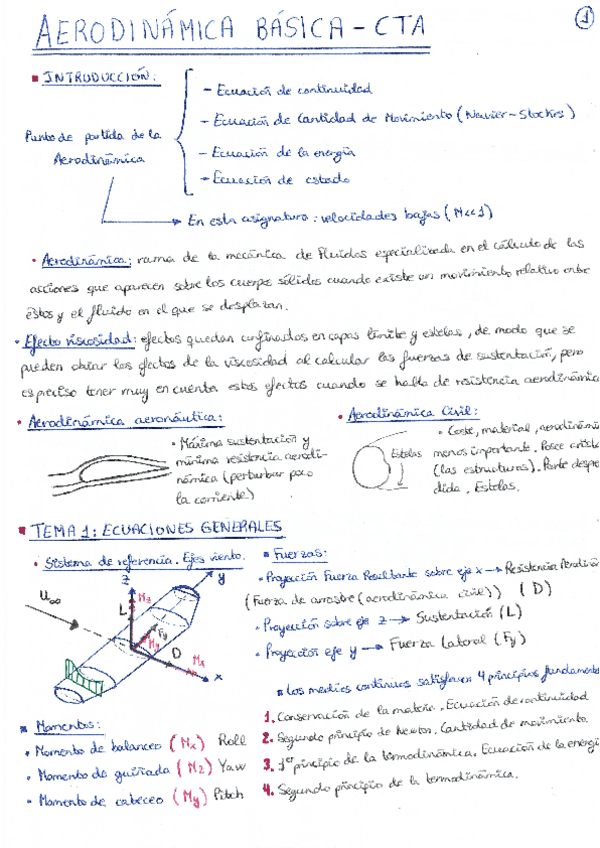 AERODINÁMICA BÁSICA - CTA
1
INTRODUCCIÓN:
- Ecuación de continuidad
- Ecuación de Cantidad de Movimiento (Navier-Stockes)
Punto de partida de la
Aerodinámica
- Ecuación de la energía
- Ecuación de estado
En esta asignatura: velocidades bajas (M<<1)
Aerodinámica: rama de la mecánica de fluidos especializada en el cálculo de las
acciones que aparecen sobre los cuerpos sólidos cuando existe un movimiento relativo entre
éstos y el fluido en el que se desplazan.
Efecto viscosidad: efectos quedan confinados en capas límite y estelas, de modo que se
pueden obviar los efectos de la viscosidad al calcular las fuerzas de sustentación, pero
es preciso tener muy en cuenta estos efectos cuando se habla de resistencia aerodinámica
Aerodinámica aeronáutica:
Máxima sustentación y
mínima resistencia aerodi-
námica (perturbar poco
la corriente)
Aerodinámica Civil:
Coste, material, aerodinámi
Estelas menos importante. Posee
(las estructuras). Parte despe
dida. Estelas.
TEMA 1: ECUACIONES GENERALES
Sistema de referencia. Ejes viento.
z
y
U∞
L
Mz
Fy
My
D
Mx
x
Fuerzas:
Proyección Fuerza Resultante sobre eje x → Resistencia
(Fuerza de arrastre (aerodinámica civil)) (D)
Proyección sobre eje z → Sustentación (L)
Proyección eje y → Fuerza Lateral (Fy)
Los medios continuos satisfacen 4 principios fundament
1. Conservación de la materia. Ecuación de continuidad
2. Segundo principio de Newton. Cantidad de movimiento.
3. 1er principio de la termodinámica. Ecuación de la energí
4. Segundo principio de la termodinámica.
Momentos:
Momento de balanceo (Mx) Roll
Momento de guiñada (Mz) Yaw
Momento de cabeceo (My) Pitch